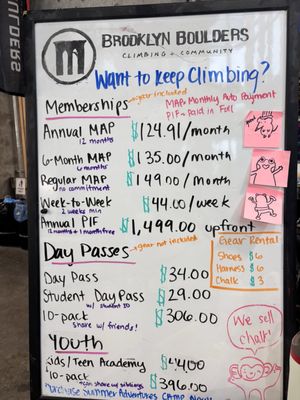 BROOKLYN BOULDERS
CLIMBING + COMMUNITY
Want to Keep Climbing?
Memberships
*gear included
MAP = Monthly Auto Payment
PIF = Paid in Full
Annual MAP $124.91/month
12 months
6-Month MAP $135.00/month
6 months
Regular MAP $149.00/month
no commitment
Week-to-Week $44.00/week
2 weeks min
Annual PIF $1,499.00 upfront
12 months + 1 month free
Day Passes
*gear not included
Gear Rental
Shoes $6
Harness $6
Chalk $3
Day Pass $34.00
Student Day Pass $29.00
w/ student ID
10-pack $306.00
share w/ friends!
We sell chalk!
Youth
Kids/Teen Academy $44.00
10-pack $396.00
*can share w/ siblings
Purchase Summer Adventures Camp Now!